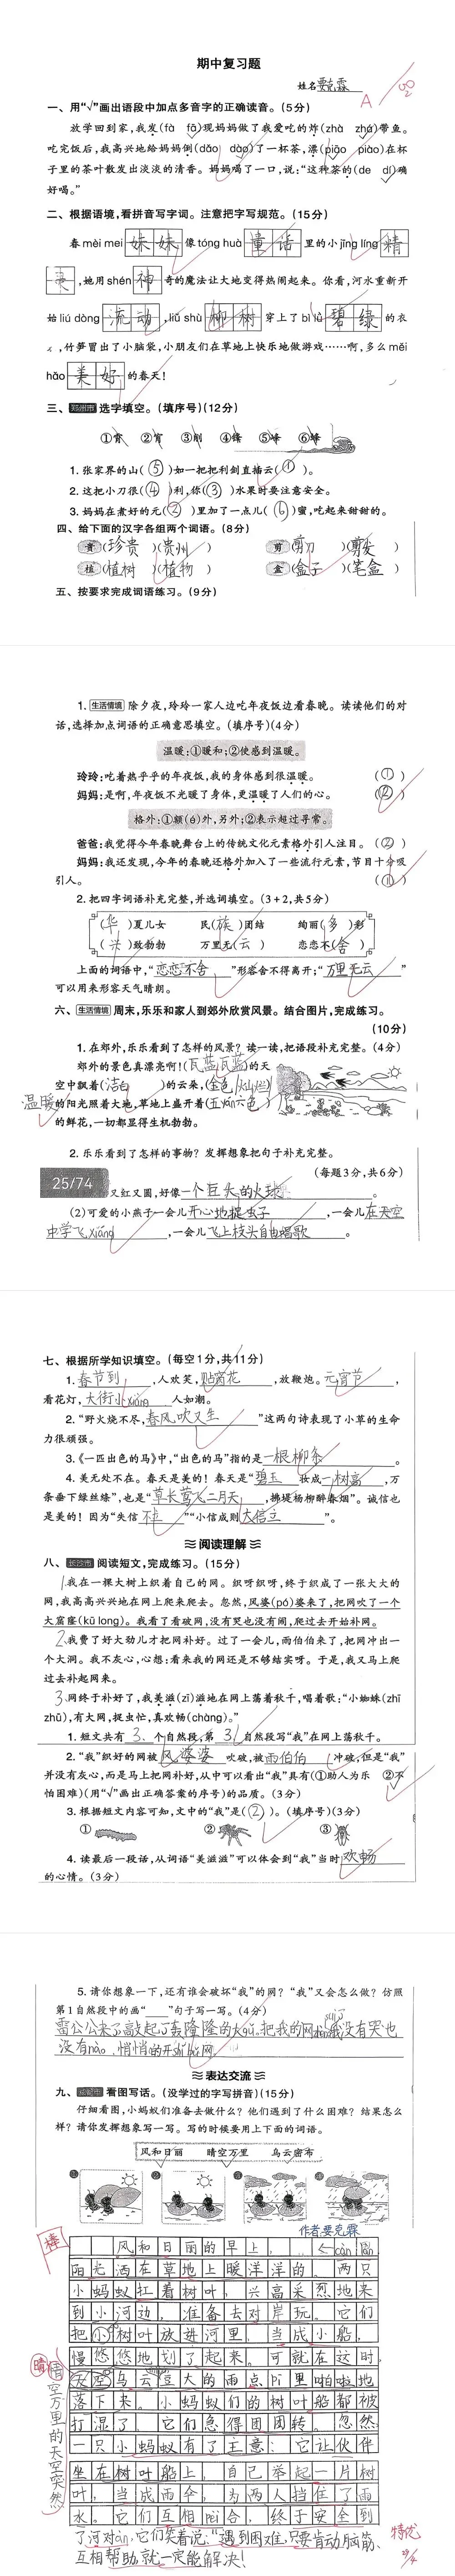 期中复习题
姓名 要克霖
A
一、用“√”画出语段中加点多音字的正确读音。(5分)
放学回到家,我发(fà fā)现妈妈做了我爱吃的炸(zhà zhá)带鱼。
吃完饭后,我高兴地给妈妈倒(dǎo dào)了一杯茶,漂(piāo piào)在杯
子里的茶叶散发出淡淡的清香。妈妈喝了一口,说:“这杯茶的(de dí)确
好喝。”
二、根据语境,看拼音写字词。注意把字写规范。(15分)
春 mèi mei 妹妹 像 tóng huà 童话 里的小 jīng líng 精
灵,她用 shén 神 奇的魔法让大地变得热闹起来。你看,河水重新开
始 liú dòng 流动,liǔ shù 柳树 穿上了 bì lǜ 碧绿 的衣
,竹笋冒出了小脑袋,小朋友们在草地上快乐地做游戏……啊,多么 měi
hǎo 美好 的春天!
三、郑州市 选字填空。(填序号)(12分)
①宵 ②宵 ③削 ④锋 ⑤峰 ⑥蜂
1. 张家界的山(⑤)如一把把利剑直插云(①)。
2. 这把小刀很(④)利,你(③)水果时要注意安全。
3. 妈妈在煮好的元(②)里加了一点儿(⑥)蜜,吃起来甜甜的。
四、给下面的汉字各组两个词语。(8分)
贵(珍贵)(贵州) 剪(剪刀)(剪发)
植(植树)(植物) 盒(盒子)(笔盒)
五、按要求完成词语练习。(9分)
1. 生活情境 除夕夜,玲玲一家人边吃年夜饭边看春晚。读读他们的对
话,选择加点词语的正确意思填空。(填序号)(4分)
温暖:①暖和;②使感到温暖。
玲玲:吃着热乎乎的年夜饭,我的身体感到很温暖。 (①)
妈妈:是啊,年夜饭不光暖了身体,更温暖了人们的心。 (②)
格外:①额(é)外,另外;②表示超过寻常。
爸爸:我觉得今年春晚舞台上的传统文化元素格外引人注目。 (②)
妈妈:我还发现,今年的春晚还格外加入了一些流行元素,节目十分吸
引人。 (①)
2. 把四字词语补充完整,并选词填空。(3+2,共5分)
(华)夏儿女 民(族)团结 绚丽(多)彩
(兴)致勃勃 万里无(云) 恋恋不(舍)
上面的词语中,“恋恋不舍”形容舍不得离开;“万里无云”
可以用来形容天气晴朗。
六、生活情境 周末,乐乐和家人到郊外欣赏风景。结合图片,完成练习。
(10分)
1. 在郊外,乐乐看到了怎样的风景?读一读,把语段补充完整。(4分)
郊外的景色真漂亮啊!(瓦蓝瓦蓝)的天
空中飘着(洁白)的云朵,(金色 灿烂)
温暖的阳光照着大地,草地上盛开着(五yán六色)
的鲜花,一切都显得生机勃勃。
2. 乐乐看到了怎样的事物?发挥想象把句子补充完整。
(每题3分,共6分)
25/74
又红又圆,好像一个巨大的火球。
(2)可爱的小燕子一会儿开心地捉虫子,一会儿在天空
中学飞xiáng,一会儿飞上枝头自由唱歌。
七、根据所学知识填空。(每空1分,共11分)
1. 春节到,人欢笑,贴窗花,放鞭炮。元宵节,
看花灯,大街小xiàng人如潮。
2. “野火烧不尽,春风吹又生”这两句诗表现了小草的生命
力很顽强。
3. 《一匹出色的马》中,“出色的马”指的是一根柳条。
4. 美无处不在。春天是美的!春天是“碧玉妆成一树高,万
条垂下绿丝绦”,也是“草长莺飞二月天,拂堤杨柳醉春烟”。诚信也
是美的!因为“失信不立”“小信成则大信立”。
阅读理解
八、长沙市 阅读短文,完成练习。(15分)
1. 我在一棵大树上织着自己的网。织呀织呀,终于织成了一张大大的
网,我高高兴兴地在网上爬来爬去。忽然,风婆(pó)婆来了,把网吹了一个
大窟窿(kū long)。我看了看破网,没有哭也没有闹,爬过去开始补网。
2. 我费了好大劲儿才把网补好。过了一会儿,雨伯伯来了,把网冲出一
个大洞。我不灰心,心想:看来我的网还是不够结实呀。于是,我又马上爬
过去补起网来。
3. 网终于补好了,我美滋(zī)滋地在网上荡着秋千,唱着歌:“小蜘蛛(zhī
zhū),有大网,捉虫忙,真欢畅(chàng)。”
1. 短文共有 3、个自然段,第 3 自然段写“我”在网上荡秋千。
2. “我”织好的网被 风婆婆 吹破,被 雨伯伯 冲破,但是“我”
并没有灰心,而是马上把网补好,从中可以看出“我”具有(①助人为乐 ②不
怕困难)(用“√”画出正确答案的序号)的品质。(3分)
3. 根据短文内容可知,文中的“我”是(②)。(填序号)(3分)
① ② ③
4. 读最后一段话,从词语“美滋滋”可以体会到“我”当时 欢畅
的心情。(3分)
5. 请你想象一下,还有谁会破坏“我”的网?“我”又会怎么做?仿照
第1自然段中的画“——”句子写一写。(4分)
雷公公来了,敲起了轰隆隆的大gǔ,把我的网 我没有哭也
没有nào,悄悄的开shǐ bǔ网。
表达交流
九、看图写话。(没学过的字写拼音)(15分)
仔细看图,小蚂蚁们准备去做什么?他们遇到了什么困难?结果怎么
样?请你发挥想象写一写。写的时候要用上下面的词语。
风和日丽 晴空万里 乌云密布
作者要克霖
棒
风和日丽的早上, càn làn
阳光洒在草地上暖洋洋的。两只
小蚂蚁扛着树叶,兴高采烈地来
到小河边,准备去对岸玩。它们
把小树叶放进河里,当成小船,
慢悠悠地划了起来。可就在这时,
晴空万里的天空突然
乌云 豆大的雨点pī里啪啦地
落下来。小蚂蚁们的树叶船都被
打湿了,它们急得团团转。忽然
一只小蚂蚁有了主意:它让伙伴
坐在树叶船上,自己举起一片树
叶,当成雨伞,为两人挡住了雨
水。它们互相pèi合,终于安全到
了河对àn,它们笑着说:“遇到困难,只要肯动脑筋、
互相帮助,就一定能解决!
特优